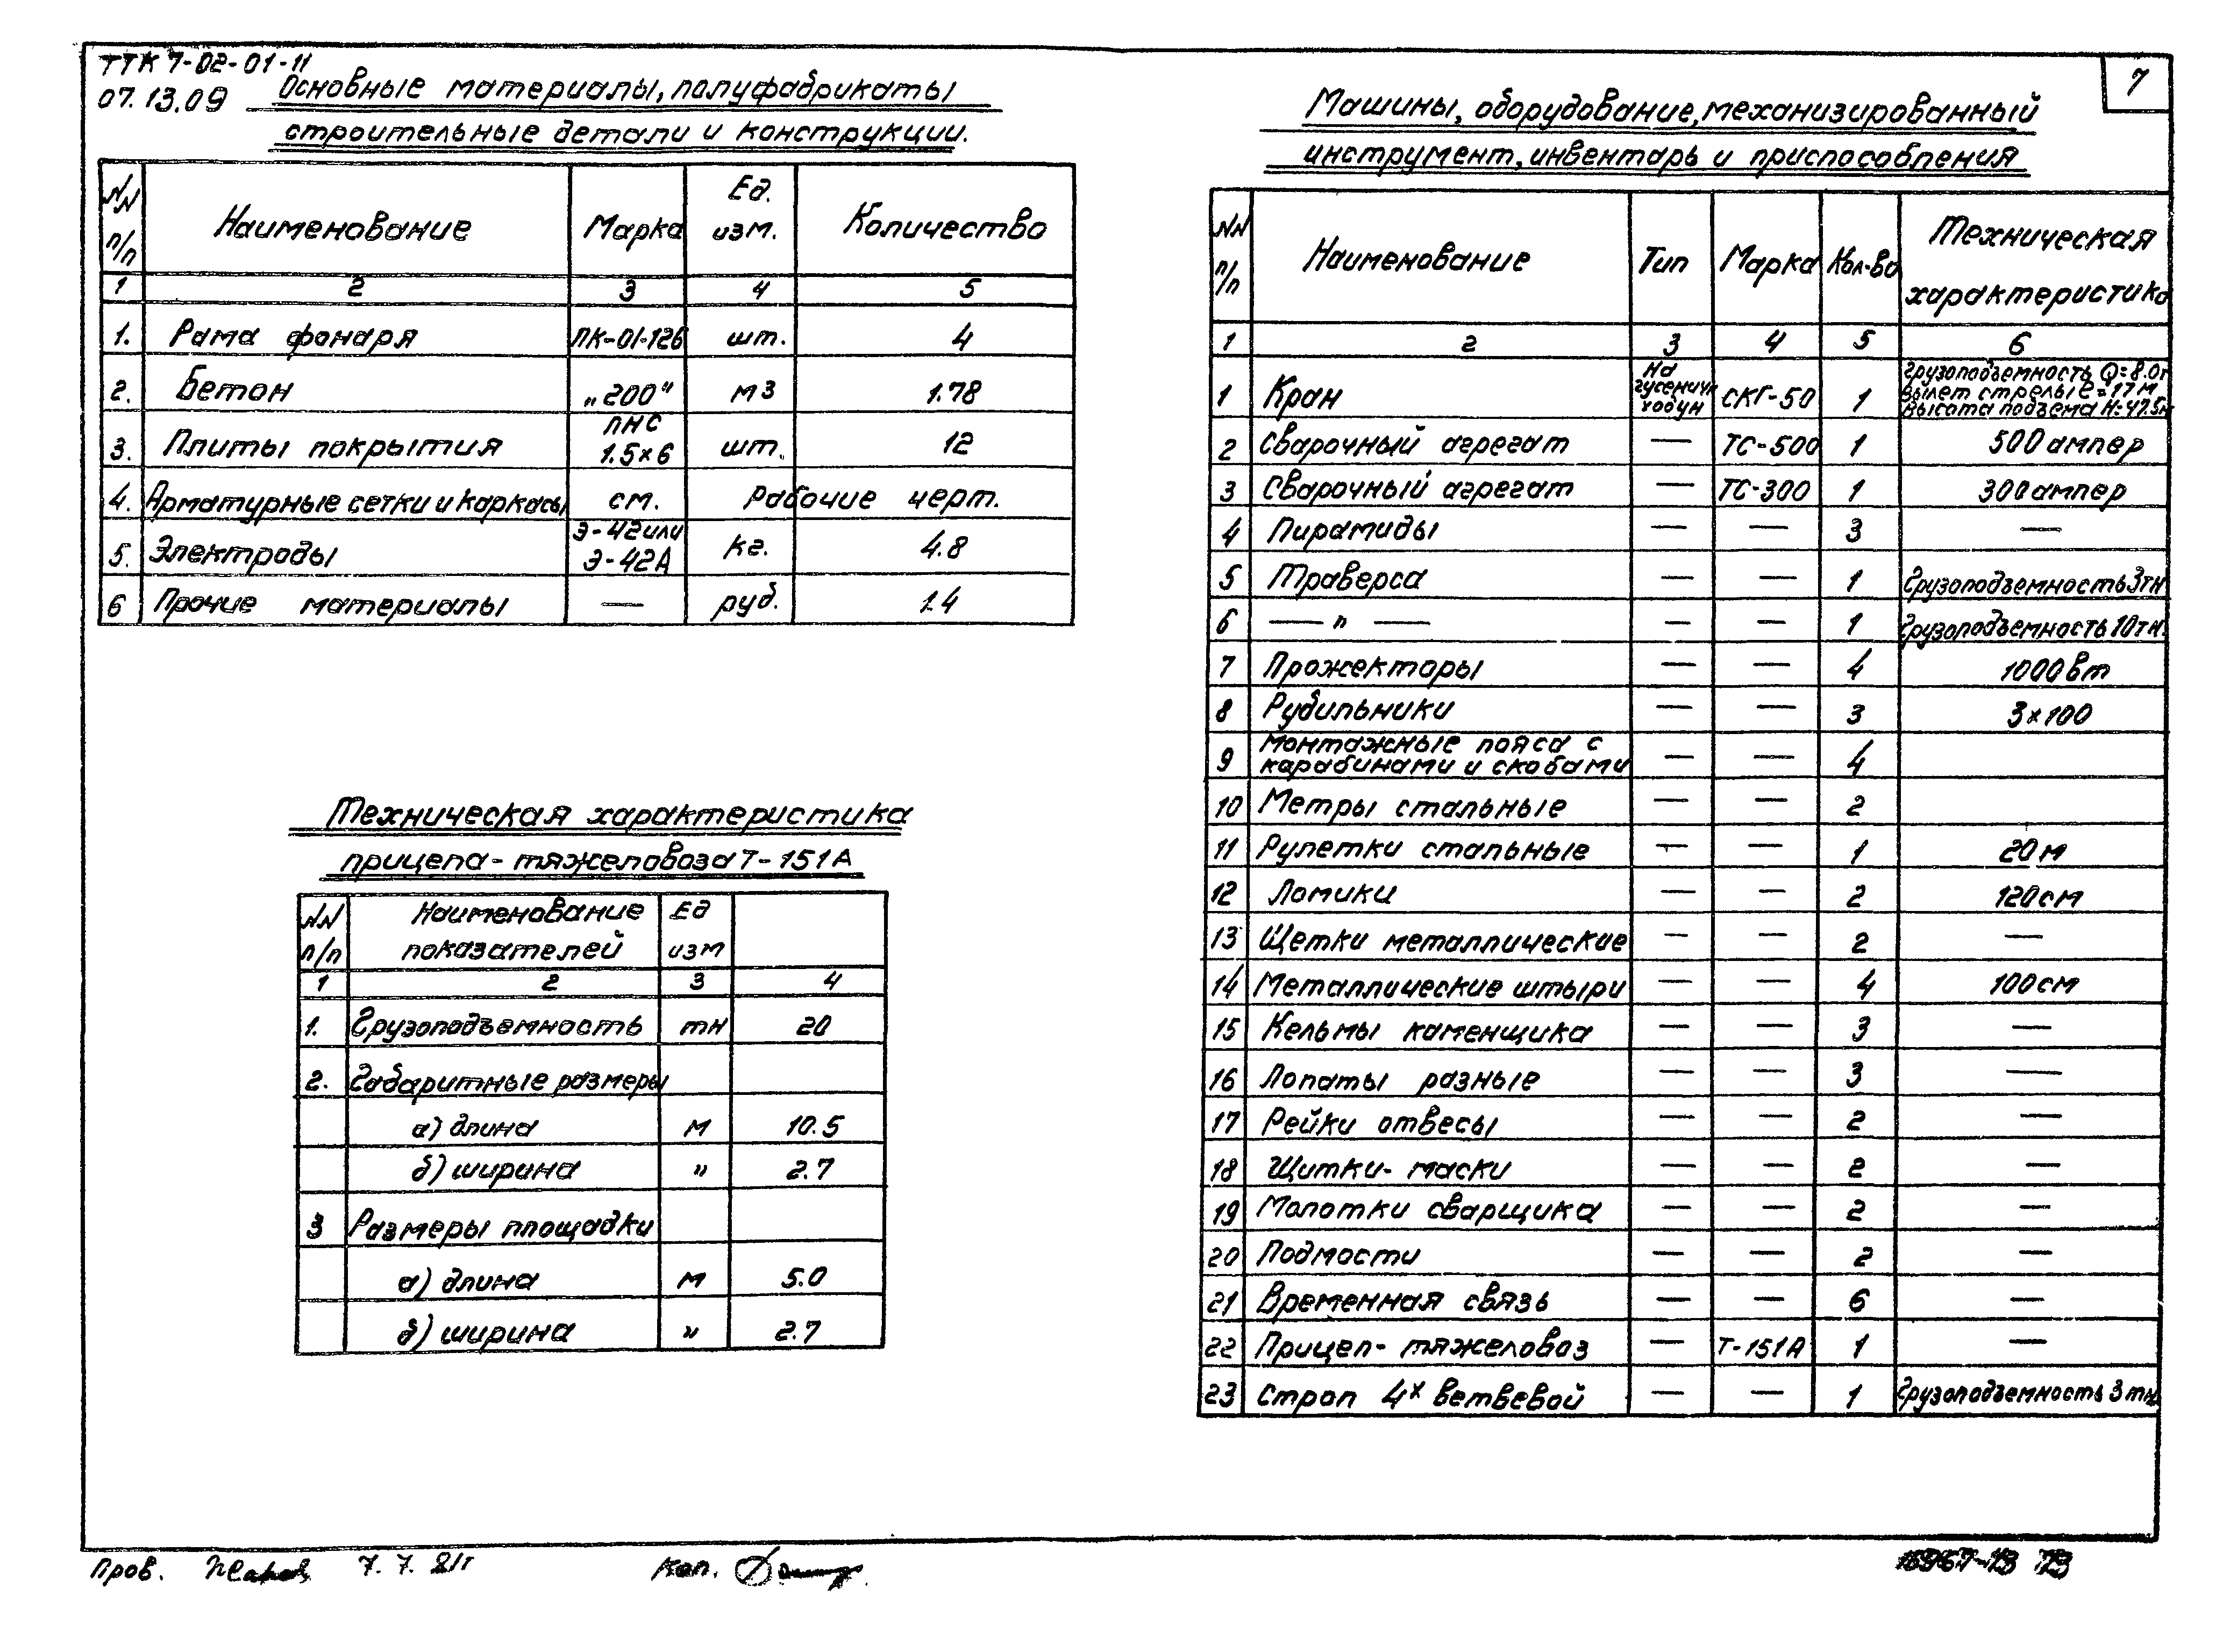 ТТК 7-02-01-11
07.13.09
Основные материалы, полуфабрикаты
строительные детали и конструкции.
NN п/п Наименование Марка Ед. изм. Количество
1 2 3 4 5
1. Рама фонаря ПК-01-126 шт. 4
2. Бетон „200" м3 1.78
3. Плиты покрытия ПНС 1.5×6 шт. 12
4. Арматурные сетки и каркасы см. рабочие черт.
5. Электроды Э-42 или Э-42А кг. 4.8
6 Прочие материалы — руб. 1.4
Техническая характеристика
прицепа-тяжеловоза Т-151А
NN п/п Наименование показателей Ед изм
1 2 3 4
1. Грузоподъемность тн 20
2. Габаритные размеры
а) длина м 10.5
б) ширина " 2.7
3 Размеры площадки
а) длина м 5.0
б) ширина " 2.7
7
Машины, оборудование, механизированный
инструмент, инвентарь и приспособления
NN п/п Наименование Тип Марка Кол-во Техническая характеристика
1 2 3 4 5 6
1 Кран На гусеничн ходун СКГ-50 1 Грузоподъемность Q=8.0т Вылет стрелы ℓ=17м Высота подъема Н=47.5м
2 Сварочный агрегат — ТС-500 1 500 ампер
3 Сварочный агрегат — ТС-300 1 300 ампер
4 Пирамиды — — 3 —
5 Траверса — — 1 Грузоподъемность 3тн
6 — " — — — 1 Грузоподъемность 10тн.
7 Прожекторы — — 4 1000 вт
8 Рубильники — — 3 3×100
9 Монтажные пояса с карабинами и скобами — — 4
10 Метры стальные — — 2
11 Рулетки стальные — — 1 20 м
12 Ломики — — 2 120 см
13 Щетки металлические — — 2 —
14 Металлические штыри — — 4 100 см
15 Кельмы каменщика — — 3 —
16 Лопаты разные — — 3 —
17 Рейки отвесы — — 2 —
18 Щитки-маски — — 2 —
19 Молотки сварщика — — 2 —
20 Подмости — — 2 —
21 Временная связь — — 6 —
22 Прицеп-тяжеловоз — Т-151А 1 —
23 Строп 4х ветвевой — — 1 Грузоподъемность 3 тн
Пров. 7.7.81г Коп.